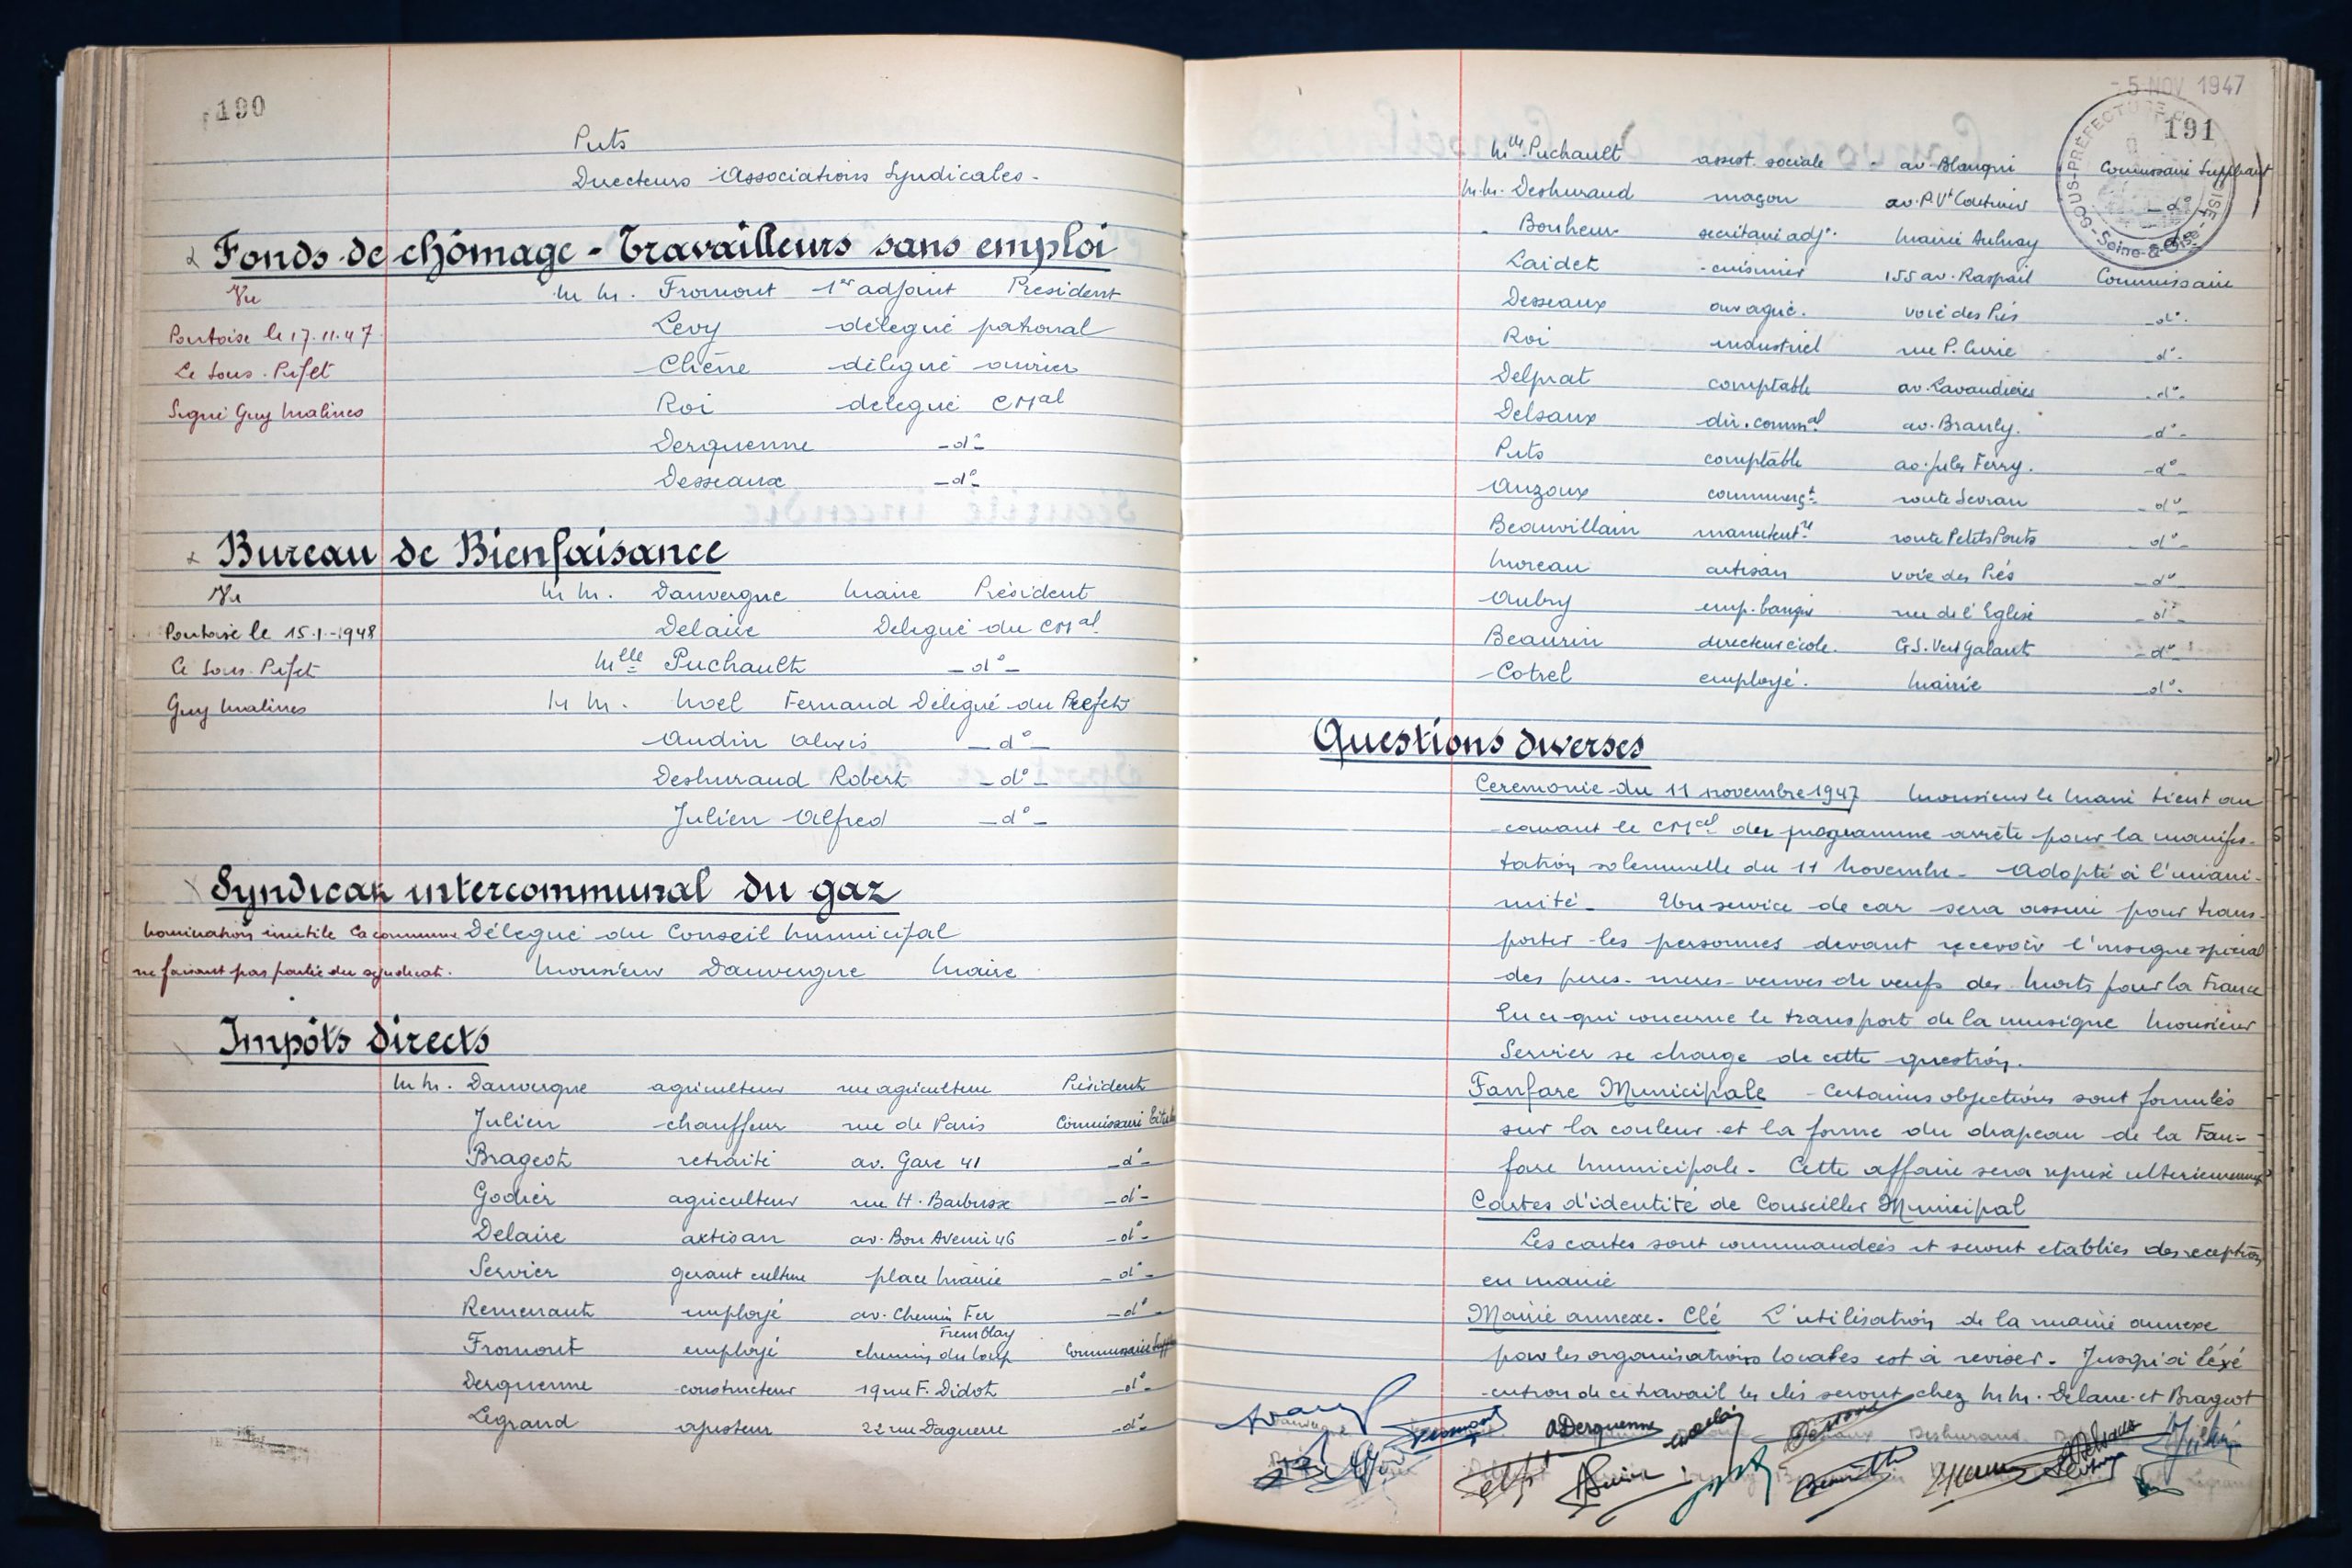 190
Puts
Directeurs Associations Syndicales -
Fonds de chômage - Travailleurs sans emploi
Vu
Pontoise le 17.11.47
Le Sous-Préfet
Signé Guy Malines
M M. Fromont 1er adjoint Président
Levy délégué patronal
Chêne délégué ouvrier
Roi délégué CMal
Derquenne -d°-
Desseaux -d°-
Bureau de Bienfaisance
Vu
Pontoise le 15-1-1948
Le Sous-Préfet
Guy Malines
M M. Dauvergne Maire Président
Delaire Délégué du CMal
Mlle Puchault -d°-
M M. Noël Fernand Délégué du Préfet
Audin Alexis -d°-
Deshuraud Robert -d°-
Julien Alfred -d°-
Syndicat intercommunal du gaz
Nomination inutile la commune
ne faisant pas partie du syndicat.
Délégué du Conseil Municipal
Monsieur Dauvergne Maire
Impôts directs
M M. Dauvergne agriculteur rue agriculture Président
Julien chauffeur rue de Paris Commissaire
Brageot retraité av. Gare 41 -d°-
Godier agriculteur rue H. Barbusse -d°-
Delaire artisan av. Bon Avenir 46 -d°-
Servier gérant culture place Mairie -d°-
Remenant employé av. Chemin Fer -d°-
Tremblay
Fromont employé chemin du Loup Commissaire
Derquenne constructeur 19 rue F. Didot -d°-
Legrand ajusteur 22 rue Daguerre -d°-
- 5 NOV 1947
191
SOUS-PRÉFECTURE
Seine-&-Oise
Mlle. Puchault assist. sociale - av. Blanqui Commissaire Suppléant
M.M. Deshuraud maçon av. P. Vt Couturier -d°-
Bonheur secrétaire adjt. Mairie Aulnay -d°-
Laidet cuisinier 155 av. Raspail Commissaire
Desseaux ouv agric. voie des Prés -d°-
Roi industriel rue P. Curie -d°-
Delprat comptable av. Lavandières -d°-
Delsaux dir. commal av. Branly. -d°-
Puts comptable av. Jules Ferry. -d°-
Auzoux commerçt. route Sevran -d°-
Beauvillain manutentre route Petits Ponts -d°-
Moreau artisan voie des Prés -d°-
Aubry emp. banque rue de l'Eglise -d°-
Beaurin directeur école. G.S. Vert Galant -d°-
Cotrel employé. Mairie -d°-
Questions diverses
Ceremonie du 11 novembre 1947 Monsieur le Maire tient au
courant le CMal du programme arrêté pour la manifes-
tation solennelle du 11 Novembre - Adopté à l'unani-
mité - Un service de car sera assuré pour trans-
porter les personnes devant recevoir l'insigne spécial
des pères - mères - veuves de veufs des Morts pour la France
En ce qui concerne le transport de la musique Monsieur
Servier se charge de cette question.
Fanfare Municipale - Certaines objections sont formulés
sur la couleur et la forme du drapeau de la Fan-
fare Municipale - Cette affaire sera reprise ultérieurement
Cartes d'identité de Conseiller Municipal
Les cartes sont commandées et seront etablies des reception
en mairie
Mairie annexe. Clé L'utilisation de la mairie annexe
par les organisations locales est à reviser - Jusqu'à l'éxé
cution de ce travail les clés seront chez M M. Delaire et Brageot
Derquenne